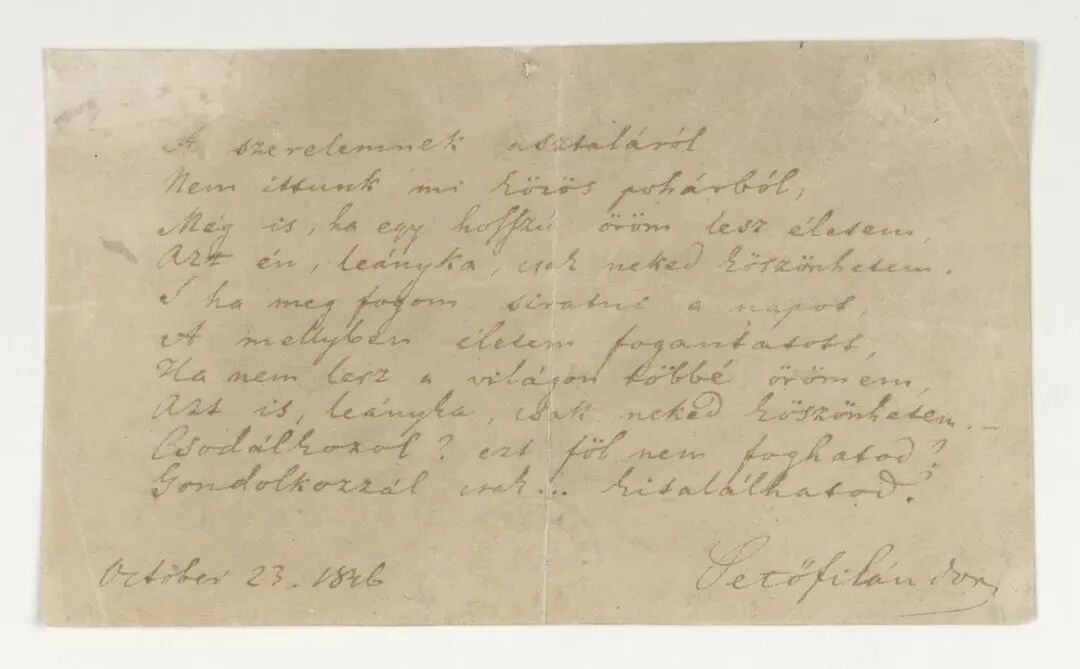 A szerelemnek asztaláról
Nem ittunk mi közös pohárból,
Még is, ha egy hosszú öröm lesz életem,
Azt én, leányka, csak neked köszönhetem.
S ha meg fogom siratni a napot,
A mellyben életem fogantatott,
Ha nem lesz a világon többé örömem,
Azt is, leányka, csak neked köszönhetem. –
Csodálkozol? ezt föl nem foghatod?
Gondolkozzál csak... kitalálhatod.
October 23. 1846
Petőfi Sándor